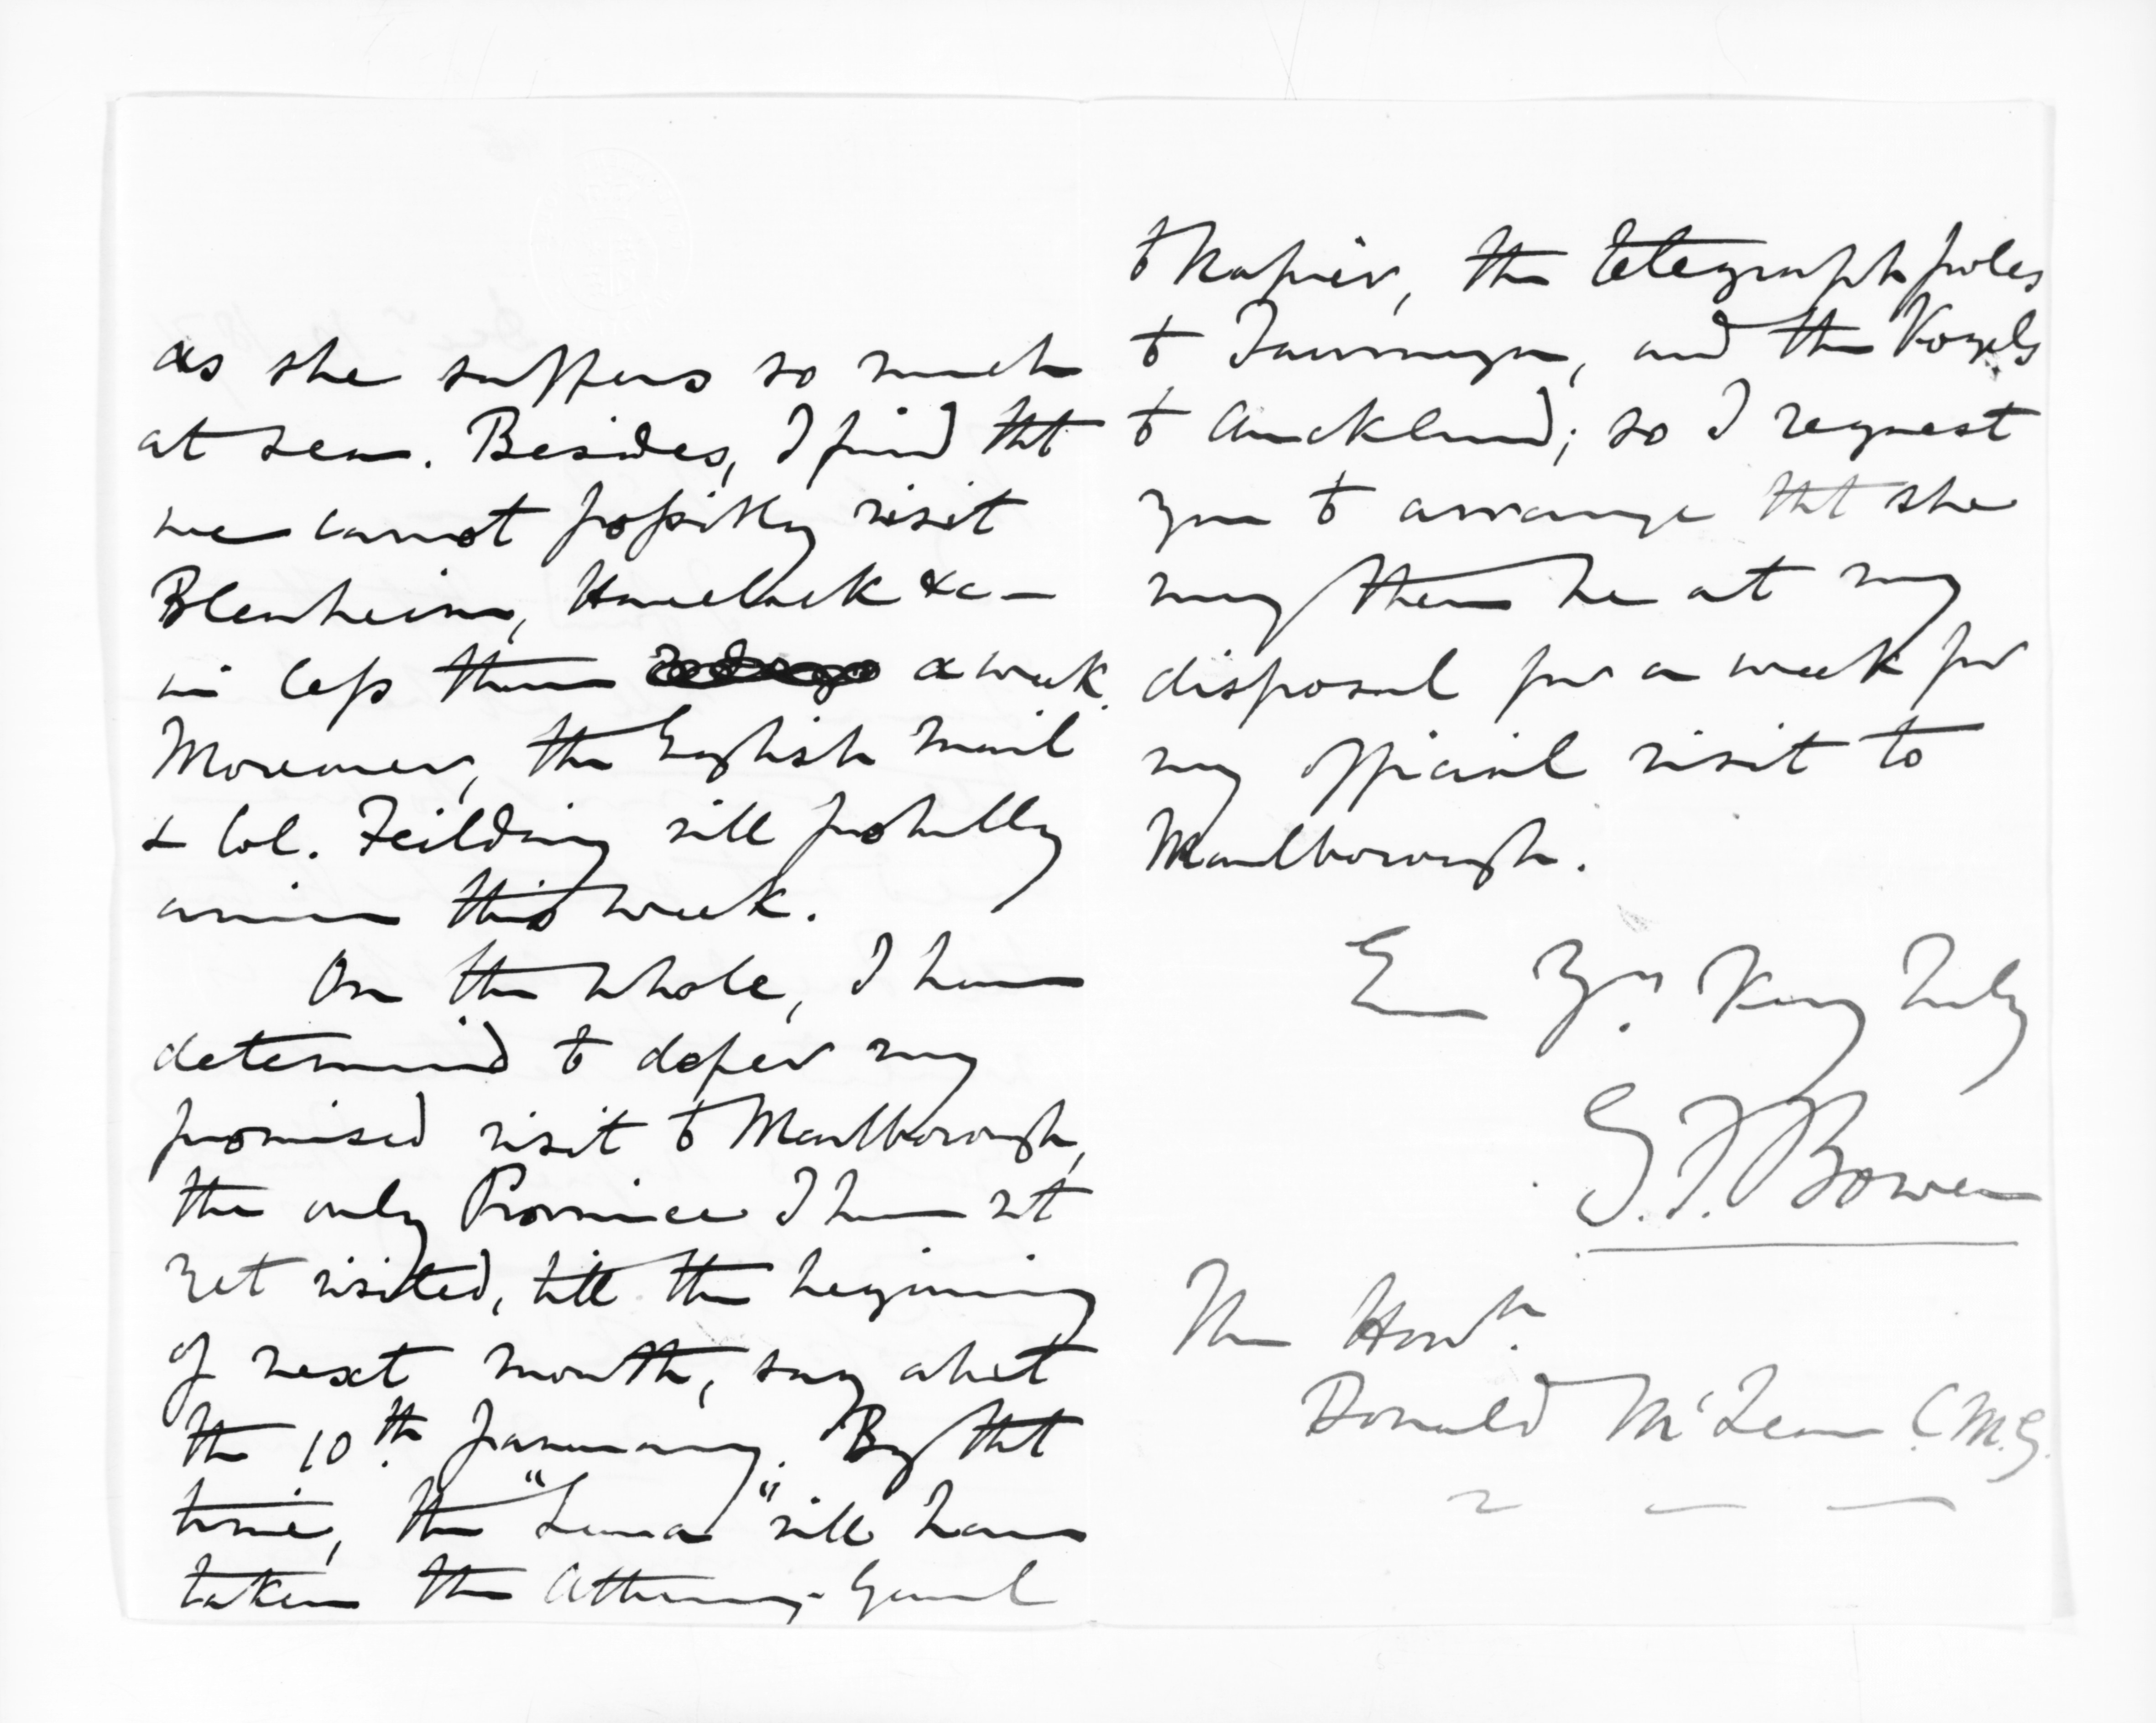 as she suffers so much
at sea. Besides, I find tht
we cannot possibly visit
Blenheim, Havelock &c –
in less than a week.
Moreover, the English mail
& Col. Feilding will probably
arrive this week.
On the whole, I have
determined to defer my
promised visit to Marlborough,
the only Province I have not
yet visited, till the beginning
of next month, say abt
the 10th. January. By tht
time, the "Luna" will have
taken the Attorney-General
to Napier, the telegraph poles
to Tauranga, and the Vogels
to Auckland; so I request
you to arrange tht she
may then be at my
disposal for a week for
my official visit to
Marlborough.
Ever Yrs. Very Truly
G.F. Bowen
The Honble.
Donald McLean C.M.G.